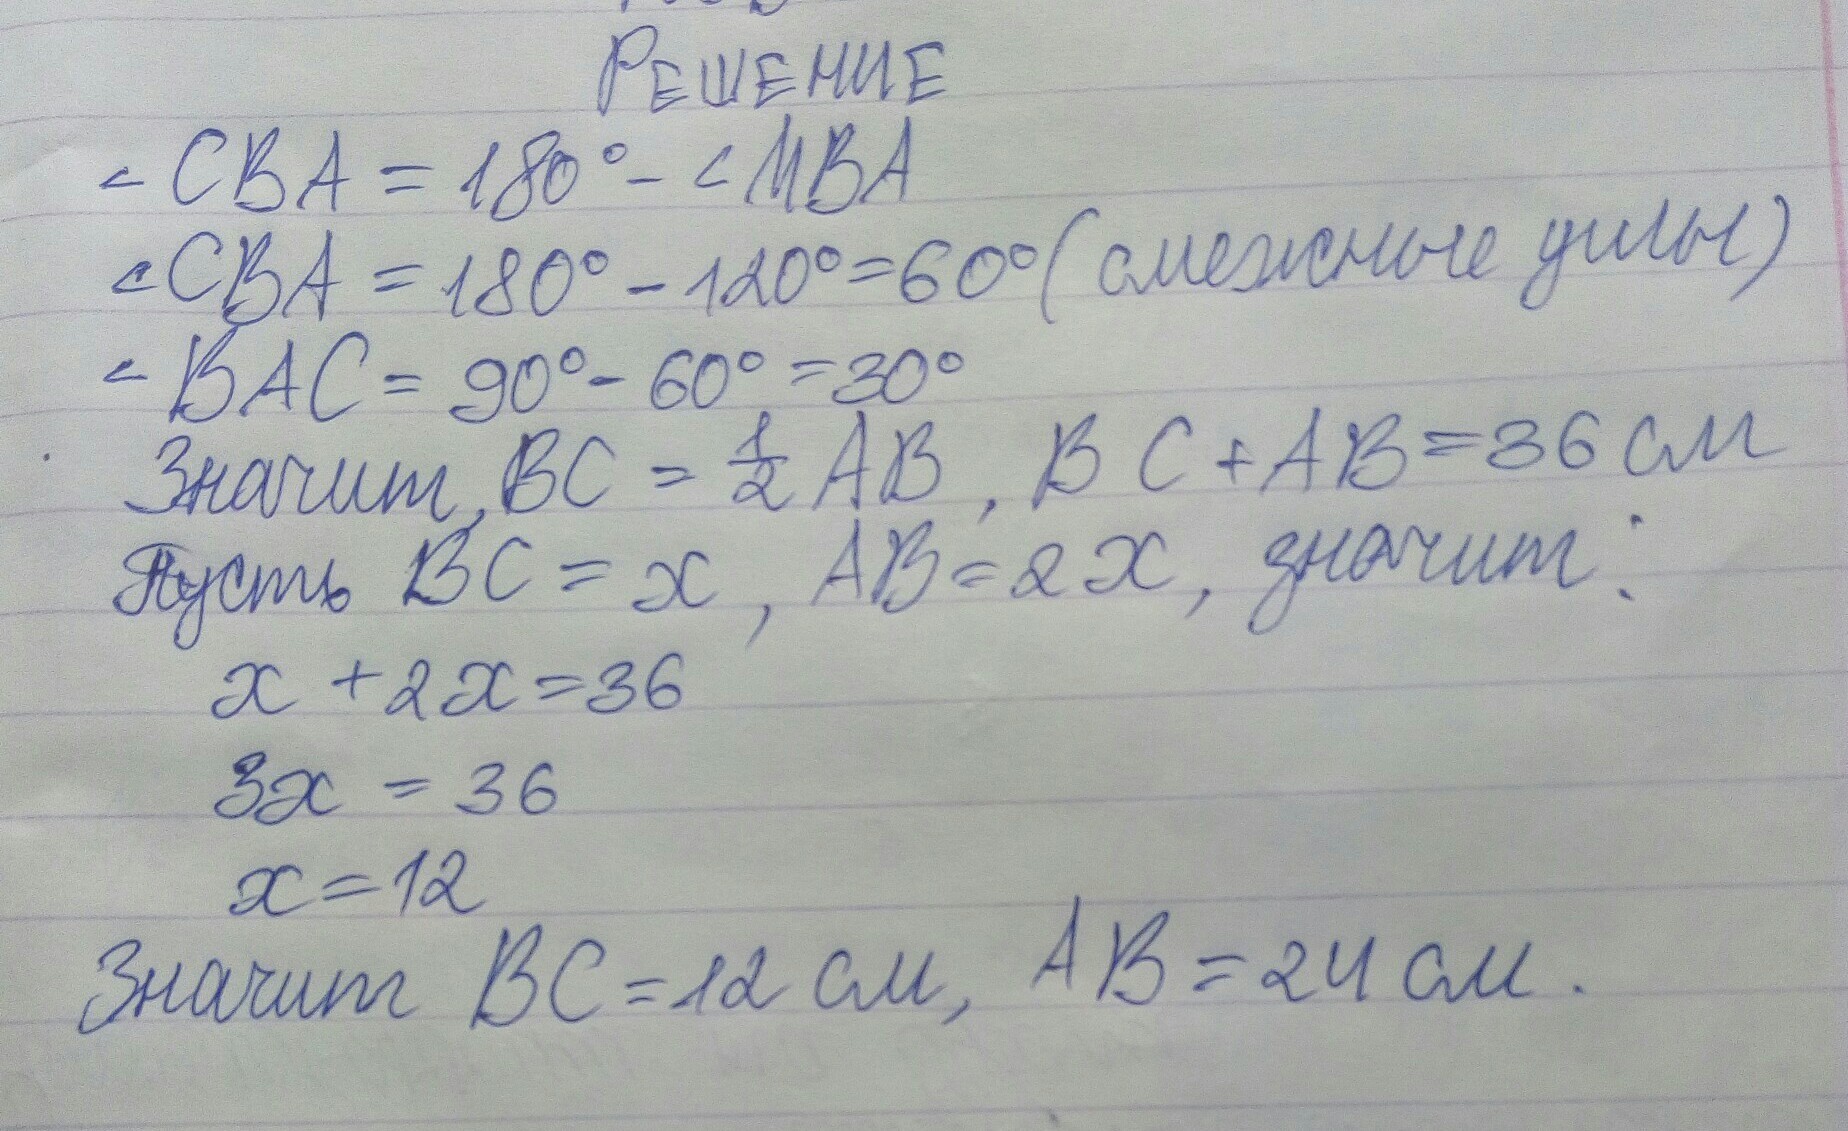 РЕШЕНИЕ
∠CBA = 180° - ∠MBA
∠CBA = 180° - 120° = 60° (смежные углы)
∠BAC = 90° - 60° = 30°
Значит, BC = 1/2 AB, BC + AB = 36 см
Пусть BC = x, AB = 2x, значит:
x + 2x = 36
3x = 36
x = 12
Значит BC = 12 см, AB = 24 см.